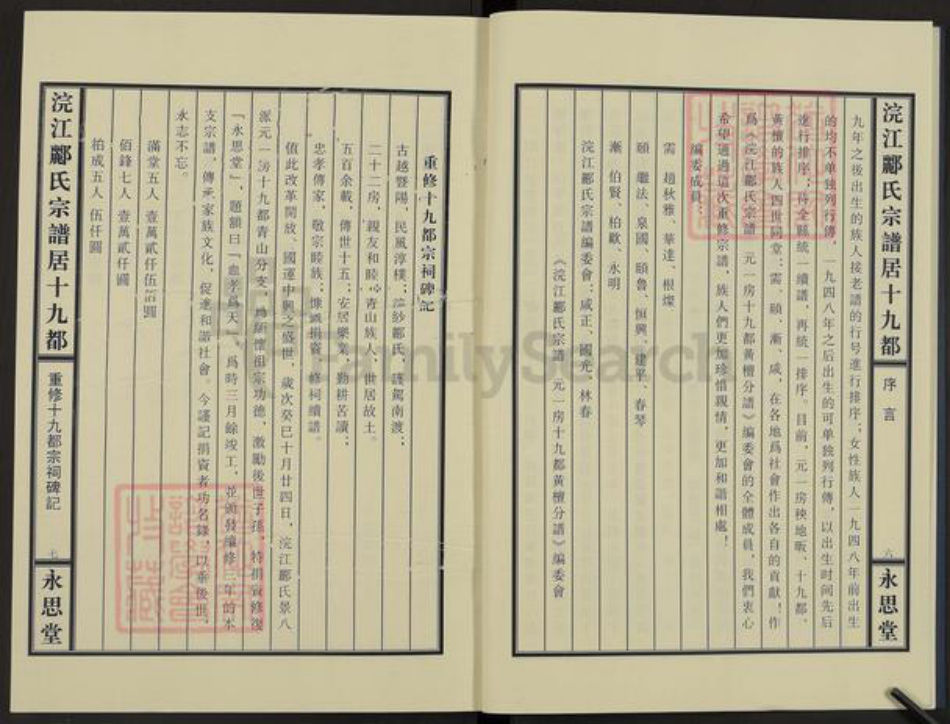 浣江酈氏宗譜居十九都
序言
六
永思堂
九年之後出生的族人接老譜的行号進行排序；女性族人一九四八年前出生
的均不单独列行傳，一九四八年之后出生的可单独列行傳，以出生时间先后
進行排序；待全縣統一續譜，再統一排序。目前，元一房秧地畈、十九都、
黃檀的族人四世同堂：需、頤、漸、咸，在各地爲社會作出各自的貢獻！作
爲《浣江酈氏宗譜 元一房十九都黃檀分譜》編委會的全體成員，我們衷心
希望通過這次重修宗譜，族人們更加珍惜親情，更加和諧相處！
編委成員：
需 趙秋雅、華達、根燦
頤 繼法、泉國、頤魯、恒興、建平、春琴
漸 伯賢、柏歐、永明
浣江酈氏宗譜編委會：咸正、國光、林春
《浣江酈氏宗譜 元一房十九都黃檀分譜》編委會
重修十九都宗祠碑記
古越暨陽，民風淳樸；浣紗酈氏，護駕南渡；
二十二房，親友和睦。青山族人，世居故土。
五百余載，傳世十五；安居樂業，勤耕苦讀；
忠孝傳家，敬宗睦族；慷慨捐資，修祠續譜。
值此改革開放、國運中興之盛世，歲次癸巳十月廿四日，浣江酈氏景八
派元一房十九都青山分支，爲緬懷祖宗功德，激勵後世子孫，特捐資修復
「永思堂」，題額曰「血孝爲天」，爲時三月餘竣工，並頒發編修三年的本
支宗譜，傳承家族文化，促進和諧社會。今謹記捐資者功名錄，以垂後世，
永志不忘。
滿堂五人 壹萬貳仟伍佰圓
佰鋒七人 壹萬貳仟圓
柏成五人 伍仟圓
浣江酈氏宗譜居十九都
重修十九都宗祠碑記
七
永思堂
FamilySearch